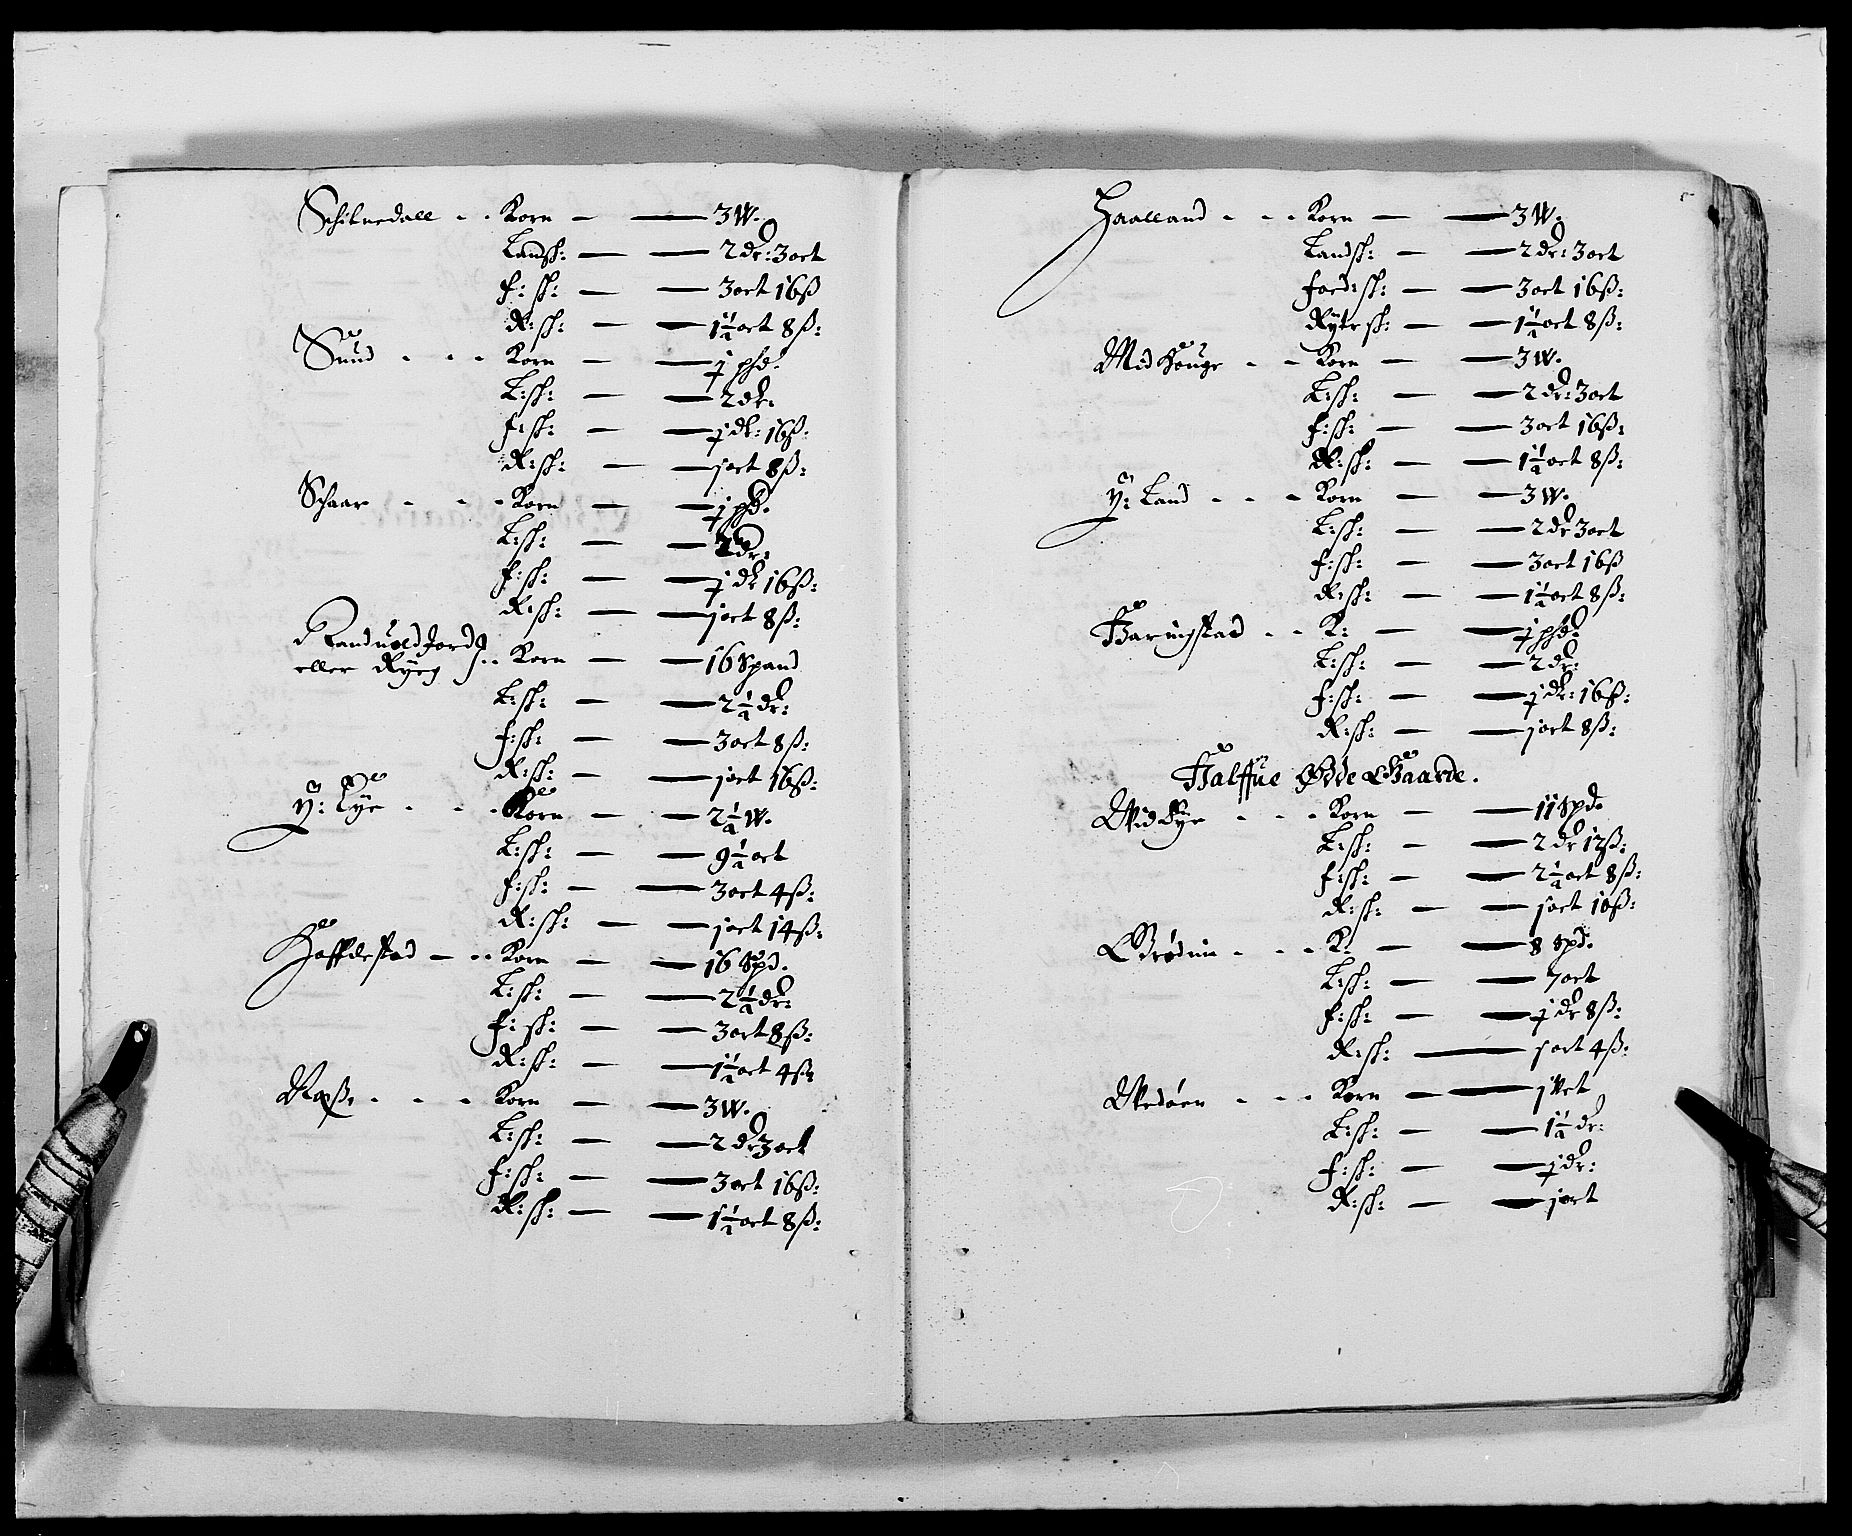 Schilnedall - - Korn — 3 W.
Landsk: — 2 dr: 3 ort
f: sk: — 3 ort 16 ß
R: sk: — 1½ ort 8 ß:
Suud - - - Korn — j phd.
L: sk: — 2 dr:
f: sk: — j dr: 16 ß:
R: sk: — j ort 8 ß:
Schaar - - - Korn — j phd.
L: sk: — 2 dr:
f: sk: — j dr 16 ß:
R: sk: — j ort 8 ß:
Randuold Jord
eller Ryeg - - Korn — 16 Spand
L: sk: — 2½ dr:
f: sk: — 3 ort 8 ß:
R: sk: — j ort 16 ß:
y: Lye - - - Korn — 2½ W.
L: sk: — 9½ ort
f: sk: — 3 ort 4 ß:
R: sk: — j ort 14 ß:
Hoffdestad - - - Korn — 16 Spd.
L: sk: — 2½ dr:
f: sk: — 3 ort 8 ß:
R: sk: — 1½ ort 4 ß:
Næss - - - Korn — 3 W.
L: sk: — 2 dr 3 ort
f: sk: — 3 ort 16 ß:
R: sk: — 1½ ort 8 ß:
Haalland - - - Korn — 3 W.
Landsk: — 2 dr: 3 ort
ford: sk: — 3 ort 16 ß:
Rytr sk: — 1½ ort 8 ß:
Mid Houge - - Korn — 3 W.
L: sk: — 2 dr: 3 ort
f: sk: — 3 ort 16 ß:
R: sk: — 1½ ort 8 ß:
y: Land - - - Korn — 3 W.
L: sk: — 2 dr 3 ort
f: sk: — 3 ort 16 ß
R: sk: — 1½ ort 8 ß:
Haringstad - - K: — j phd:
L: sk: — 2 dr:
f: sk: — j dr: 16 ß:
R: sk: — j ort 8 ß:
Halffue Øde Gaarde.
Mid Lye - - - Korn — 11 Spd.
L: sk: — 2 dr 12 ß:
f: sk: — 2½ ort 8 ß:
R: sk: — j ort 10 ß:
Grødim - - - K: — 8 Spd.
L: sk: — 7 ort
f: sk: — j dr 8 ß:
R: sk: — j ort 4 ß:
Medøen - - - Korn — j Vet
L: sk: — 1½ dr:
f: sk: — j dr:
R: sk: — j ort